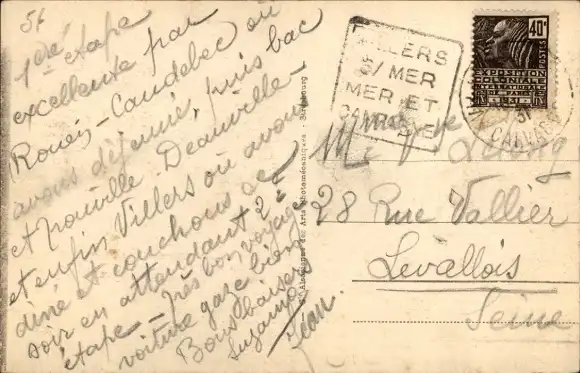 51
1ère étape
excellente par
Rouen - Caudebec où
avons déjeuné, puis bac
et Deauville -
et enfin Villers où avons
diné et couchons ce
soir en attendant 2e
étape - très bon voyage
voiture gaze bien
Bons baisers
Suzanne
Jean
VILLERS
S/ MER
MER ET
CAMPAGNE
40c
POSTES
EXPOSITION
COLONIALE
INTERNATIONALE
DE PARIS
1931
31
CALVADOS
28 Rue Vallier
Levallois
Seine